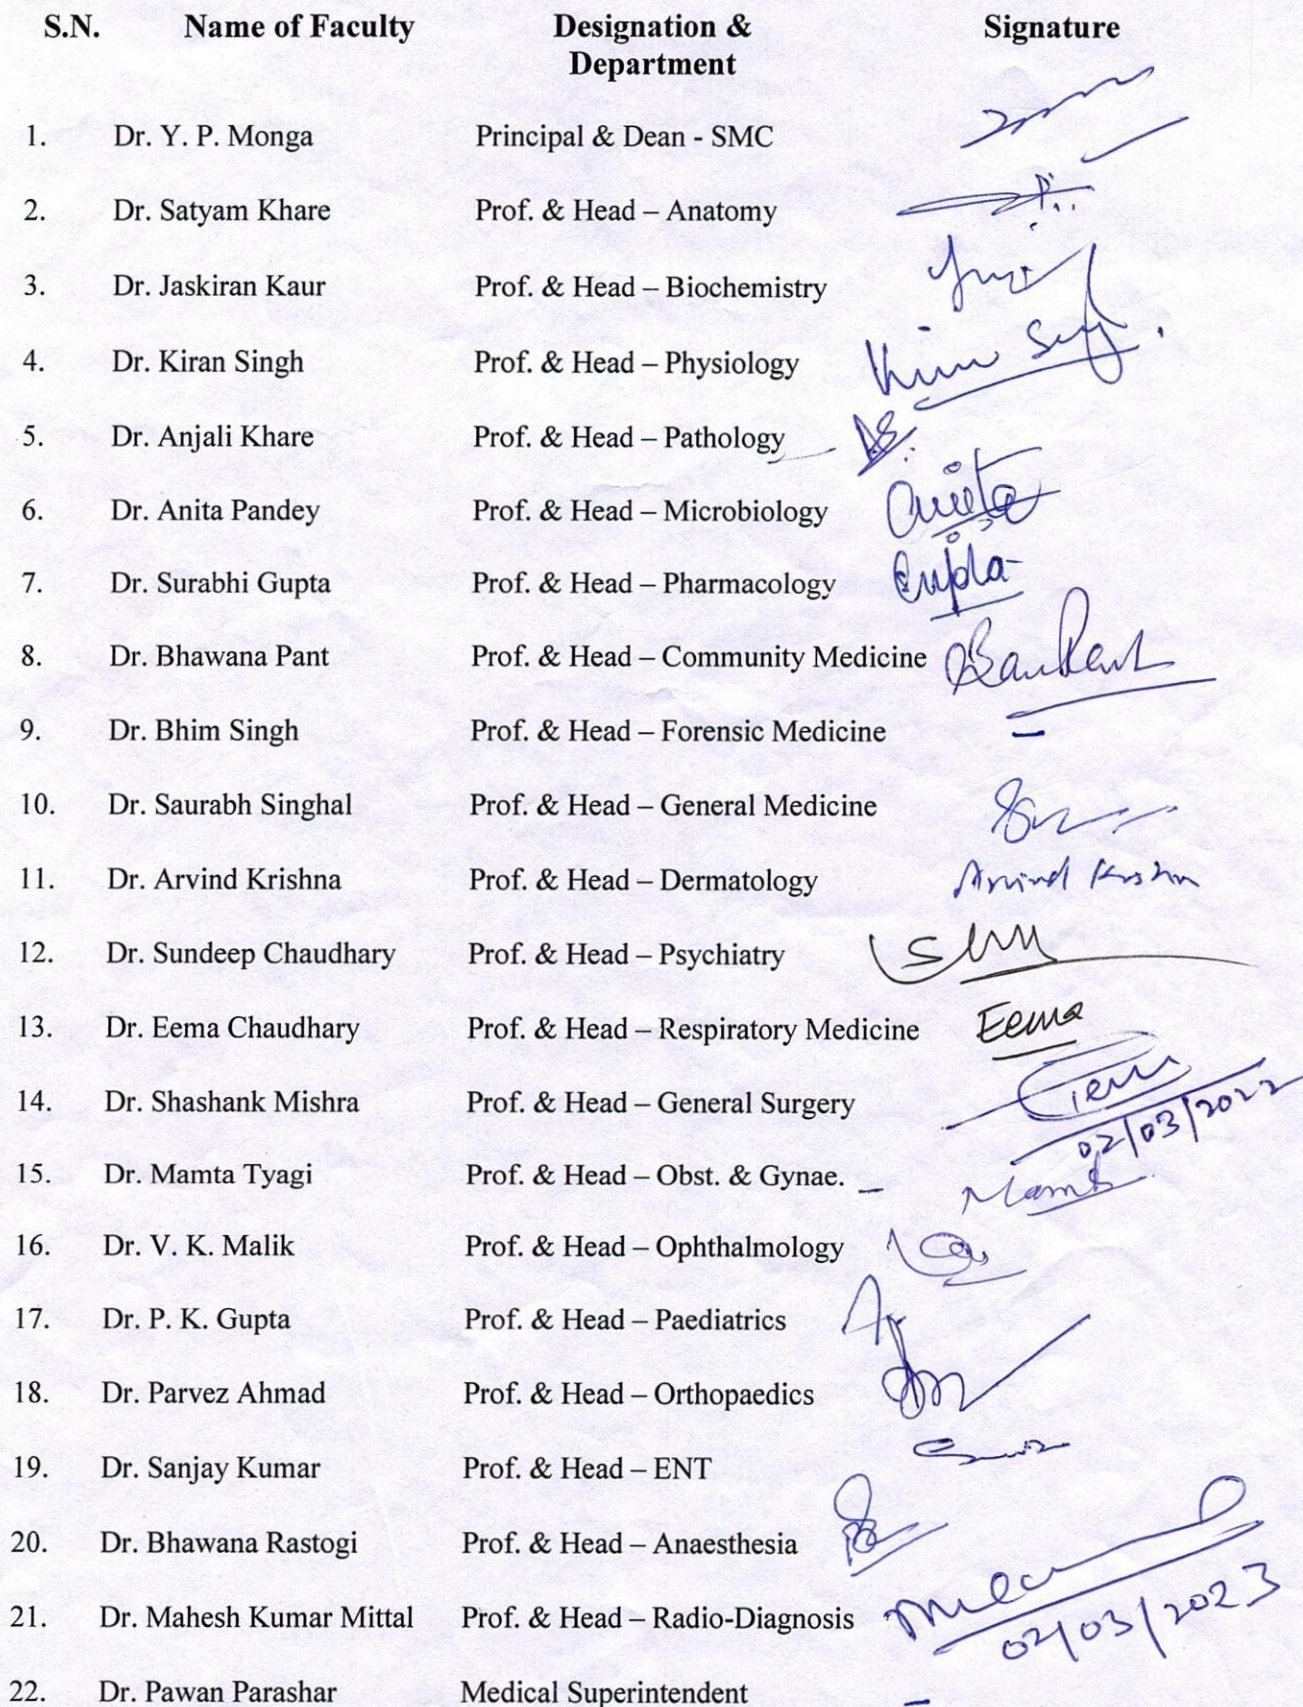 S.N. Name of Faculty Designation & Signature
Department
1. Dr. Y. P. Monga Principal & Dean - SMC
2. Dr. Satyam Khare Prof. & Head – Anatomy
3. Dr. Jaskiran Kaur Prof. & Head – Biochemistry
4. Dr. Kiran Singh Prof. & Head – Physiology
5. Dr. Anjali Khare Prof. & Head – Pathology
6. Dr. Anita Pandey Prof. & Head – Microbiology Anita
7. Dr. Surabhi Gupta Prof. & Head – Pharmacology Gupta
8. Dr. Bhawana Pant Prof. & Head – Community Medicine
9. Dr. Bhim Singh Prof. & Head – Forensic Medicine –
10. Dr. Saurabh Singhal Prof. & Head – General Medicine
11. Dr. Arvind Krishna Prof. & Head – Dermatology Arvind Krishna
12. Dr. Sundeep Chaudhary Prof. & Head – Psychiatry
13. Dr. Eema Chaudhary Prof. & Head – Respiratory Medicine Eema
14. Dr. Shashank Mishra Prof. & Head – General Surgery
02/03/2022
15. Dr. Mamta Tyagi Prof. & Head – Obst. & Gynae. – Mamta
16. Dr. V. K. Malik Prof. & Head – Ophthalmology
17. Dr. P. K. Gupta Prof. & Head – Paediatrics
18. Dr. Parvez Ahmad Prof. & Head – Orthopaedics
19. Dr. Sanjay Kumar Prof. & Head – ENT
20. Dr. Bhawana Rastogi Prof. & Head – Anaesthesia
21. Dr. Mahesh Kumar Mittal Prof. & Head – Radio-Diagnosis
02/03/2023
22. Dr. Pawan Parashar Medical Superintendent –